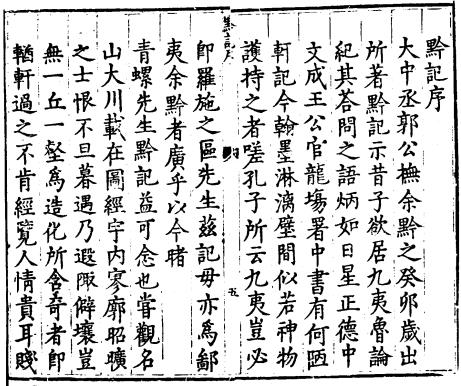 黔記序
大中丞郭公撫余黔之癸卯歲出
所著黔記示昔子欲居九夷魯論
紀其荅問之語炳如日星正德中
文成王公官龍塲署中書有何陋
軒記今翰墨淋漓壁間似若神物
護持之者嗟孔子所云九夷豈必
五
即羅施之區先生茲記毋亦為鄙
夷余黔者廣乎以今睹
青螺先生黔記益可念也嘗觀名
山大川載在圖經宇内寥廓昭曠
之士恨不旦暮遇乃遐陬僻壤豈
無一丘一壑為造化所含奇者即
輶軒過之不肯經覽人情貴耳賤